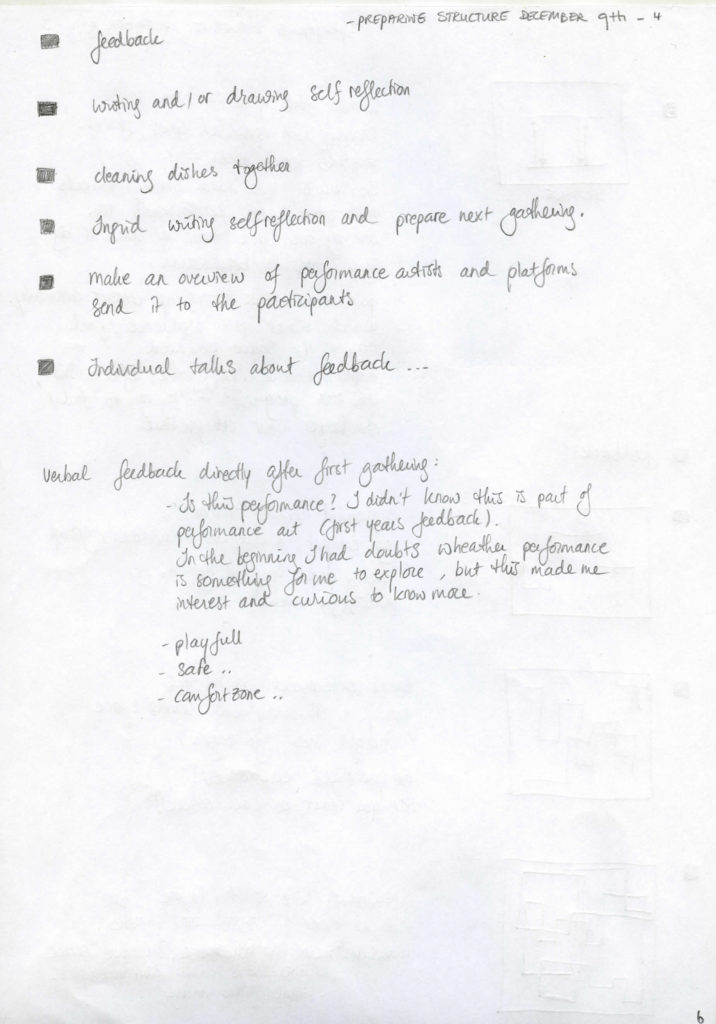 -PREPARING STRUCTURE DECEMBER 9th - 4
feedback
writing and/or drawing self reflection
cleaning dishes together
Ingrid writing selfreflection and prepare next gathering.
make an overview of performance artists and platforms
send it to the participants
Individual talks about feedback ...
Verbal feedback directly after first gathering:
- Is this performance? I didn't know this is part of
performance art (first years feedback).
In the beginning I had doubts wheather performance
is something for me to explore, but this made me
interest and curious to know more.
- playfull
- safe ..
- comfortzone ..
6